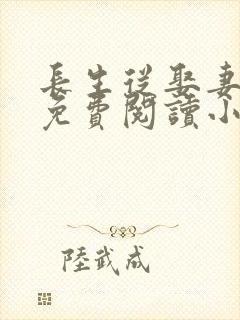 長生從娶妻
免費閱讀小
陸武成